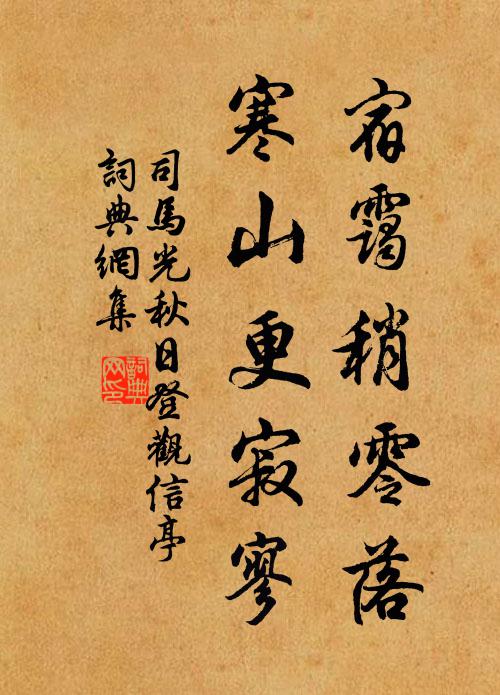 宿靄稍零落
寒山更寂寥
司馬光秋日登觀信亭
詞典網集
詞典网印